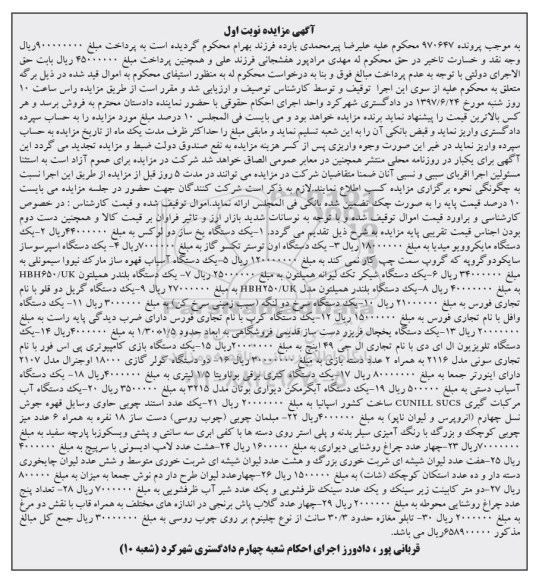 آگهی مزایده نوبت اول
به موجب پرونده ۹۷۰۶۴۷ محکوم علیه علیرضا پیرمحمدی بارده فرزند بهرام محکوم گردیده است به پرداخت مبلغ ۹۰۰۰۰۰۰۰۰ریال
وجه نقد و خسارت تاخیر در حق محکوم له مهدی مرادپور هفشجانی فرزند علی و همچنین پرداخت مبلغ ۴۵۰۰۰۰۰۰ ریال بابت حق
الاجرای دولتی با توجه به عدم پرداخت مبالغ فوق و بنا به درخواست محکوم له به منظور استیفای محکوم به اموال قید شده در ذیل برگه
متعلق به محکوم علیه از سوی این اجرا توقیف و توسط کارشناس توصیف و ارزیابی شد و مقرر است از طریق مزایده راس ساعت ۱۰
روز شنبه مورخ ۱۳۹۷/۶/۲۴ در دادگستری شهرکرد واحد اجرای احکام حقوقی با حضور نماینده دادستان محترم به فروش برسد و هر
کس بالاترین قیمت را پیشنهاد نماید برنده مزایده خواهد بود و می بایست فی المجلس ۱۰ درصد مبلغ مورد مزایده را به حساب سپرده
دادگستری واریز نماید و فیض بانکی آن را به این شعبه تسلیم نماید و مابقی مبلغ را حداکثر ظرف مدت یک ماه از تاریخ مزایده به حساب
سپرده واریز نماید در غیر این صورت وجوه واریزی پس از کسر هزینه مزایده به نفع صندوق دولت ضبط و مزایده تجدید می گردد این
آگهی برای یکبار در روزنامه محلی منتشر همچنین در معابر عمومی الصاق خواهد شد شرکت در مزایده برای عموم آزاد است به استثنا
مسئولین اجرا اقربای سببی و نسبی آنان ضمنا متقاضیان شرکت در مزایده می توانند در مدت ۵ روز قبل از مزایده از طریق این اجرا نسبت
به چگونگی نحوه برگزاری مزایده کسب اطلاع نمایند.لازم به ذکر است شرکت کنندگان جهت حضور در جلسه مزایده می بایست
۱۰ درصد قیمت پایه را به صورت چک تضمین شده بانکی فی المجلس ارائه نماید.اموال توقیف شده و قیمت کارشناس : در خصوص
کارشناسی و برآورد قیمت اموال توقیف شده و باتوجه به نوسانات شدید بازار ارز و تاثیر فراوان بر قیمت کالا و همچنین دست دوم
بودن اجناس قیمت تقریبی پایه مزایده به شرح ذیل تقدیم می گردد. ۱-یک دستگاه یخ ساز دو لوکس به مبلغ ۴۴۰۰۰۰۰۰ریال ۲-یک
دستگاه مایکروویو میدیا به مبلغ ریال ۳-یک دستگاه اون توستر تخشو گاز به مبلغ ریال ۴-یک دستگاه اسپرسوساز
سایکودوگروپه که گروپ سمت چپ کار نمی کند به مبلغ ریال ۵-یک دستگاه آسیاب قهوه ساز مارک نیووا سیمونلی به
مبلغ ۳۴۰۰۰۰۰۰ ریال ۶-یک دستگاه شیکر تک لیوانه همیلتون به مبلغ ریال ۷-یک دستگاه بلندر همیلتون HBH۶۵۰/UK
به مبلغ ریال ۸-یک دستگاه بلندر همیلتون مدل HBH۲۵۰/UK به مبلغ ریال ۹-یک دستگاه گریل دو قلو با نام
تجاری فورس به مبلغ ریال ۱۰-یک دستگاه سرخ کن به مبلغ ریال ۱۱-یک دستگاه
وافل با نام تجاری فورس به مبلغ ریال ۱۲-یک دستگاه کرپ با نام تجاری فورس دارای ضرب دیدگی پایه راست به مبلغ
ریال ۱۳-یک دستگاه یخچال فریزر دست ساز قدیمی فروشگاهی به ابعاد حدود ۱/۵*۱/۳۰ به مبلغ ریال ۱۴-یک
دستگاه تلویزیون ال ای دی با نام تجاری ال جی ۴۹ اینچ به مبلغ ریال ۱۵-یک دستگاه بازی کامپیوتری پی اس فور با نام
تجاری سونی مدل ۲۱۱۶ به همراه ۲ عدد دسته بازی به مبلغ ریال ۱۶-دو دستگاه کولر گازی ۱۸۰۰۰ اوجنرال مدل ۲۱۰۷
دارای اینورتر جمعا به مبلغ ریال ۱۷-یک دستگاه کتری برقی بوناویتا ۱/۵ لیتری به مبلغ ریال ۱۸-یک دستگاه
آسیاب دستی به مبلغ ۵۰۰۰۰۰ ریال ۱۹-یک دستگاه آبگرمکن دیواری بوتان مدل ۳۲۱۵ به مبلغ ۳۵۰۰۰۰۰ ریال ۲۰-یک دستگاه آب
مرکبات گیری CUNILL SUCS ساخت کشور اسپانیا به مبلغ ریال ۲۱-یک عدد استند چوبی حاوی وسایل قهوه جوش
نسل چهارم (ائروپرس و لیوان تاپو) به مبلغ ریال ۲۲-مبلمان چوبی (چوب روسی) دست ساز ۱۸ نفره به همراه ۶ عدد میز
چوبی کوچک و بزرگ با رنگ آمیزی سیلر بدنه و پلی استر روی دسته ها با کفی ابری سه سانتی و پشتی ویسکوزبا پارچه سفید به مبلغ
ریال ۲۳-چهار عدد چراغ روشنایی دیواری به مبلغ ۱۶۰۰۰۰۰ ریال ۲۴-هشت عدد لامپ ادیسونی با سرپیچ به مبلغ
ریال ۲۵-هفت عدد لیوان شیشه ای شربت خوری بزرگ و هشت عدد لیوان شیشه ای شربت خوری متوسط و شش عدد لیوان چایخوری
دسته دار و ده عدد استکان کوچک (شات) به مبلغ ۱۵۰۰۰۰۰ ریال ۲۶-چهارعدد لیوان طرح دار دم نوش جمعا به میزان به مبلغ ۸۰۰۰۰۰
ریال ۲۷-دو متر کابینت زیر سینک و یک عدد سینک ظرفشویی و یک عدد شیر آب ظرفشویی به مبلغ ریال ۲۸-تعداد پنج
عدد چراغ روشنایی محوطه به مبلغ ریال ۲۹-چهار عدد گلاب پاش برنجی در اندازه های مختلف به همراه قاب با نقش دو مرغ
به مبلغ ریال ۳۰- تابلو مغازه حدود ۳۰/۳ سانت از نوع چلنیوم بر روی چوب روسی به مبلغ ریال جمع کل مبالغ
مذکور ۶۵۸۹۰۰۰۰۰ریال می باشد.
قربانی پور ، دادورز اجرای احکام شعبه چهارم دادگستری شهرکرد (شعبه ۱۰)